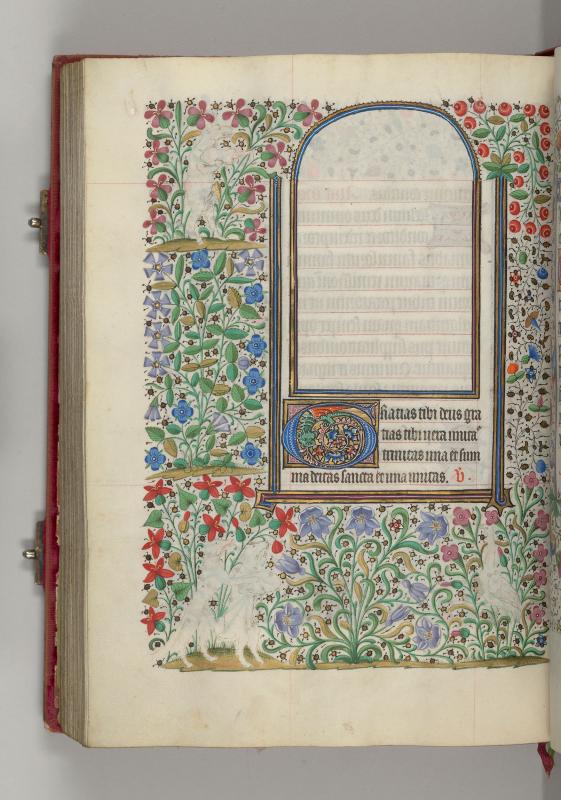 Gratias tibi deus gra
tias tibi vera unita
trinitas una et sum
ma deitas sancta et una unitas. V.